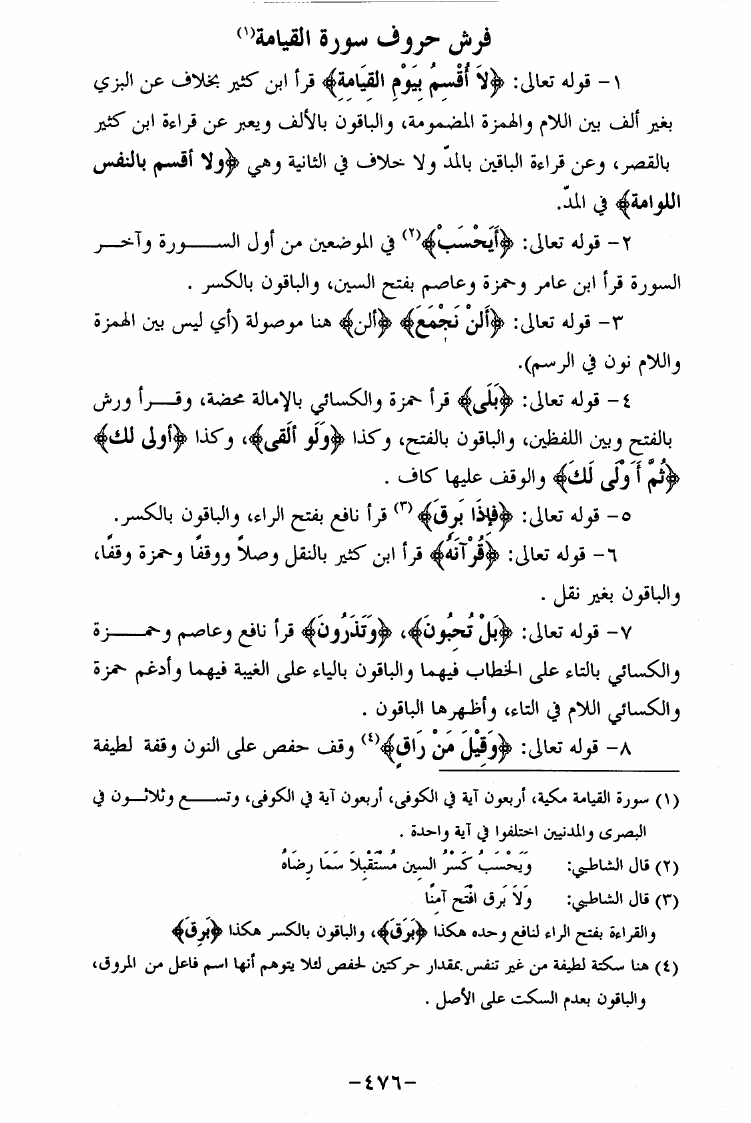 فرش حروف سورة القيامة(١)
١- قوله تعالى: ﴿لاَ أُقْسِمُ بِيَوْمِ القِيَامَةِ﴾ قرأ ابن كثير بخلاف عن البزي
بغير ألف بين اللام والهمزة المضمومة، والباقون بالألف ويعبر عن قراءة ابن كثير
بالقصر، وعن قراءة الباقين بالمدّ ولا خلاف في الثانية وهي ﴿ولا أقسم بالنفس
اللوامة﴾ في المدّ.
٢- قوله تعالى: ﴿أَيَحْسَبْ﴾(٢) في الموضعين من أول السـورة وآخـر
السورة قرأ ابن عامر وحمزة وعاصم بفتح السين، والباقون بالكسر .
٣- قوله تعالى: ﴿أَلنْ نَجْمَعَ﴾ ﴿ألن﴾ هنا موصولة (أي ليس بين الهمزة
واللام نون في الرسم).
٤- قوله تعالى: ﴿بَلَى﴾ قرأ حمزة والكسائي بالإمالة محضة، وقـرأ ورش
بالفتح وبين اللفظين، والباقون بالفتح، وكذا ﴿وَلَو أَلقى﴾، وكذا ﴿أولى لك﴾
﴿ثُمَّ أَوْلَى لَكَ﴾ والوقف عليها كاف .
٥- قوله تعالى: ﴿فَإِذَا بَرِقَ﴾(٣) قرأ نافع بفتح الراء، والباقون بالكسر.
٦- قوله تعالى: ﴿قُرْآنَهُ﴾ قرأ ابن كثير بالنقل وصلاً ووقفًا وحمزة وقفًا،
والباقون بغير نقل .
٧- قوله تعالى: ﴿بَلْ تُحِبُّونَ﴾، ﴿وَتَذَرُونَ﴾ قرأ نافع وعاصم وحمـزة
والكسائي بالتاء على الخطاب فيهما والباقون بالياء على الغيبة فيهما وأدغم حمزة
والكسائي اللام في التاء، وأظهرها الباقون .
٨- قوله تعالى: ﴿وَقِيْلَ مَنْ رَاقٍ﴾(٤) وقف حفص على النون وقفة لطيفة
(١) سورة القيامة مكية، أربعون آية في الكوفى، أربعون آية في الكوفى، وتسـع وثلاثـون في
البصرى والمدنيين اختلفوا في آية واحدة .
(٢) قال الشاطبي: وَيَحْسَبُ كَسْرُ السين مُسْتَقْبِلاَ سَمَا رِضَاهُ
(٣) قال الشاطبي: وَلاَ بَرق افْتَح آمنًا
والقراءة بفتح الراء لنافع وحده هكذا ﴿بَرَقَ﴾، والباقون بالكسر هكذا ﴿بَرِقَ﴾
(٤) هنا سكتة لطيفة من غير تنفس بمقدار حركتين لحفص لئلا يتوهم أنها اسم فاعل من المروق،
والباقون بعدم السكت على الأصل .
-٤٧٦-